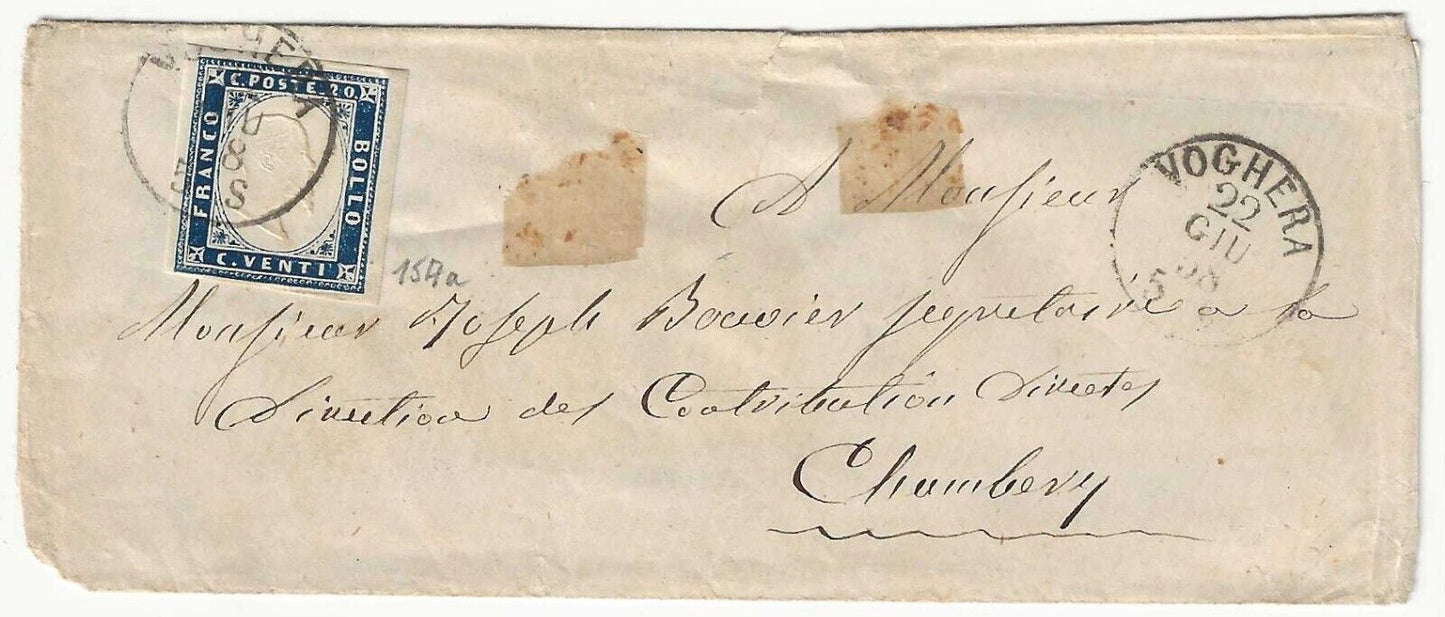 C. POSTE. 20.
FRANCO
BOLLO
C. VENTI
154a
VOGHERA
22
GIU
A Monsieur
Monsieur Joseph Bouvier segretaire a la
Direction des Contribution Directes
Chambery